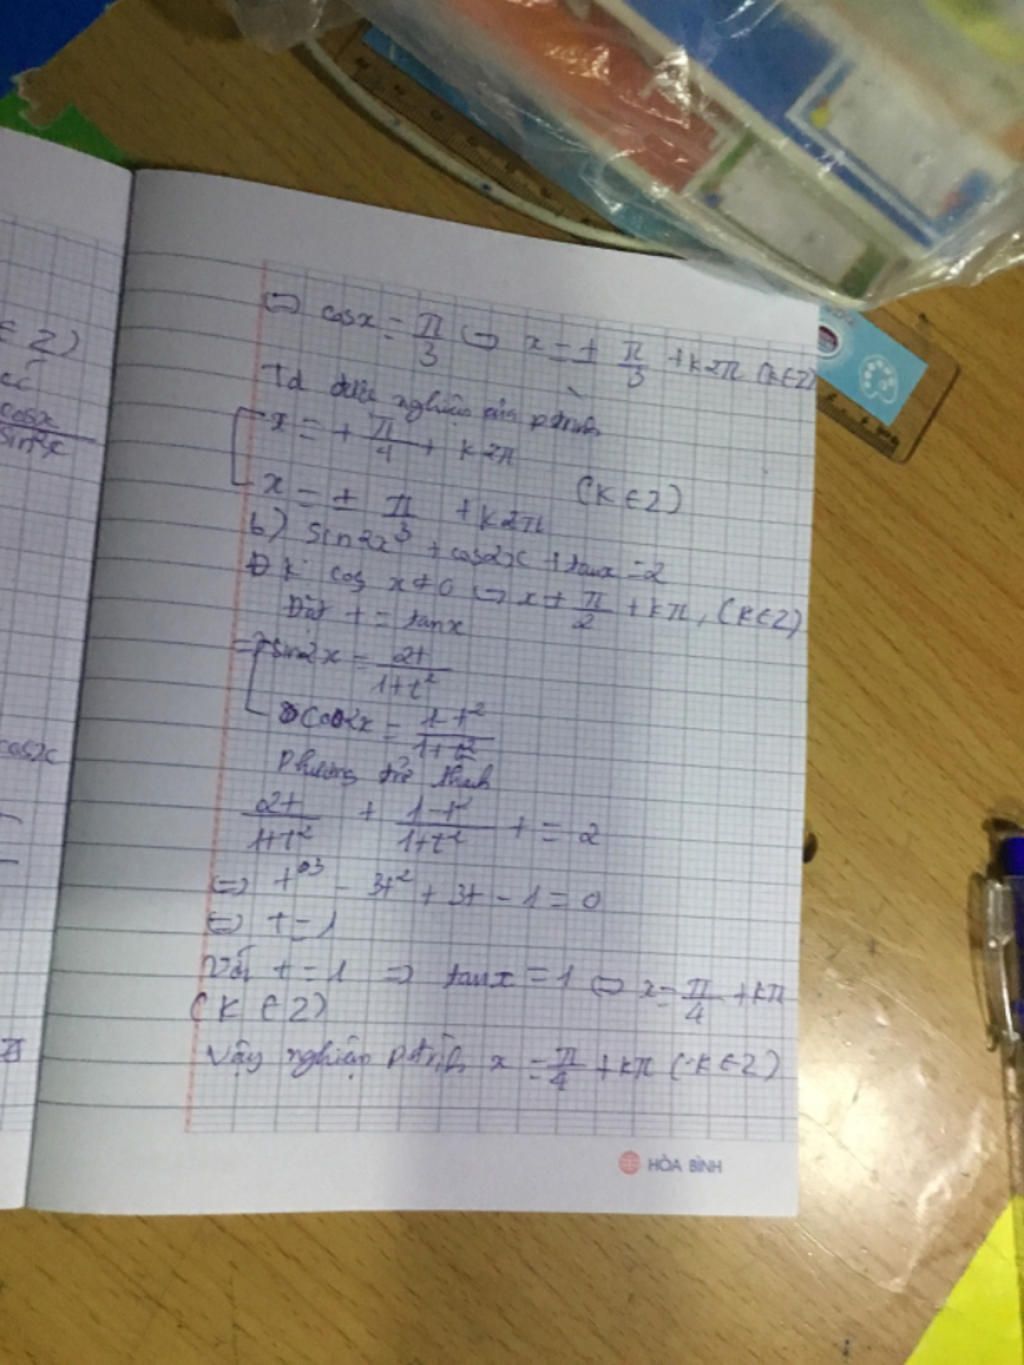 ∈ Z)
cosx
sin2x
cos2x
⇔ cosx = π/3 ⇔ x = ± π/3 + k2π (k∈Z)
Td được nghiệm của ptrình
x = + π/4 + k2π
(K ∈ Z)
x = ± π/3 + k2π
b) sin2x + cos2x + tanx = 2
ĐK: cos x ≠ 0 ⇔ x ≠ π/2 + kπ, (K∈Z)
Đặt t = tanx
=> sin2x = 2t/1+t²
cos2x = 1-t²/1+t²
Phương trở thành
2t/1+t² + 1-t²/1+t² + = 2
⇔ t³ - 3t² + 3t - 1 = 0
⇔ t = 1
Với t = 1 => tanx = 1 ⇔ x = π/4 + kπ
(K ∈ Z)
Vậy nghiệm ptrình x = π/4 + kπ (K∈Z)
HÒA BÌNH